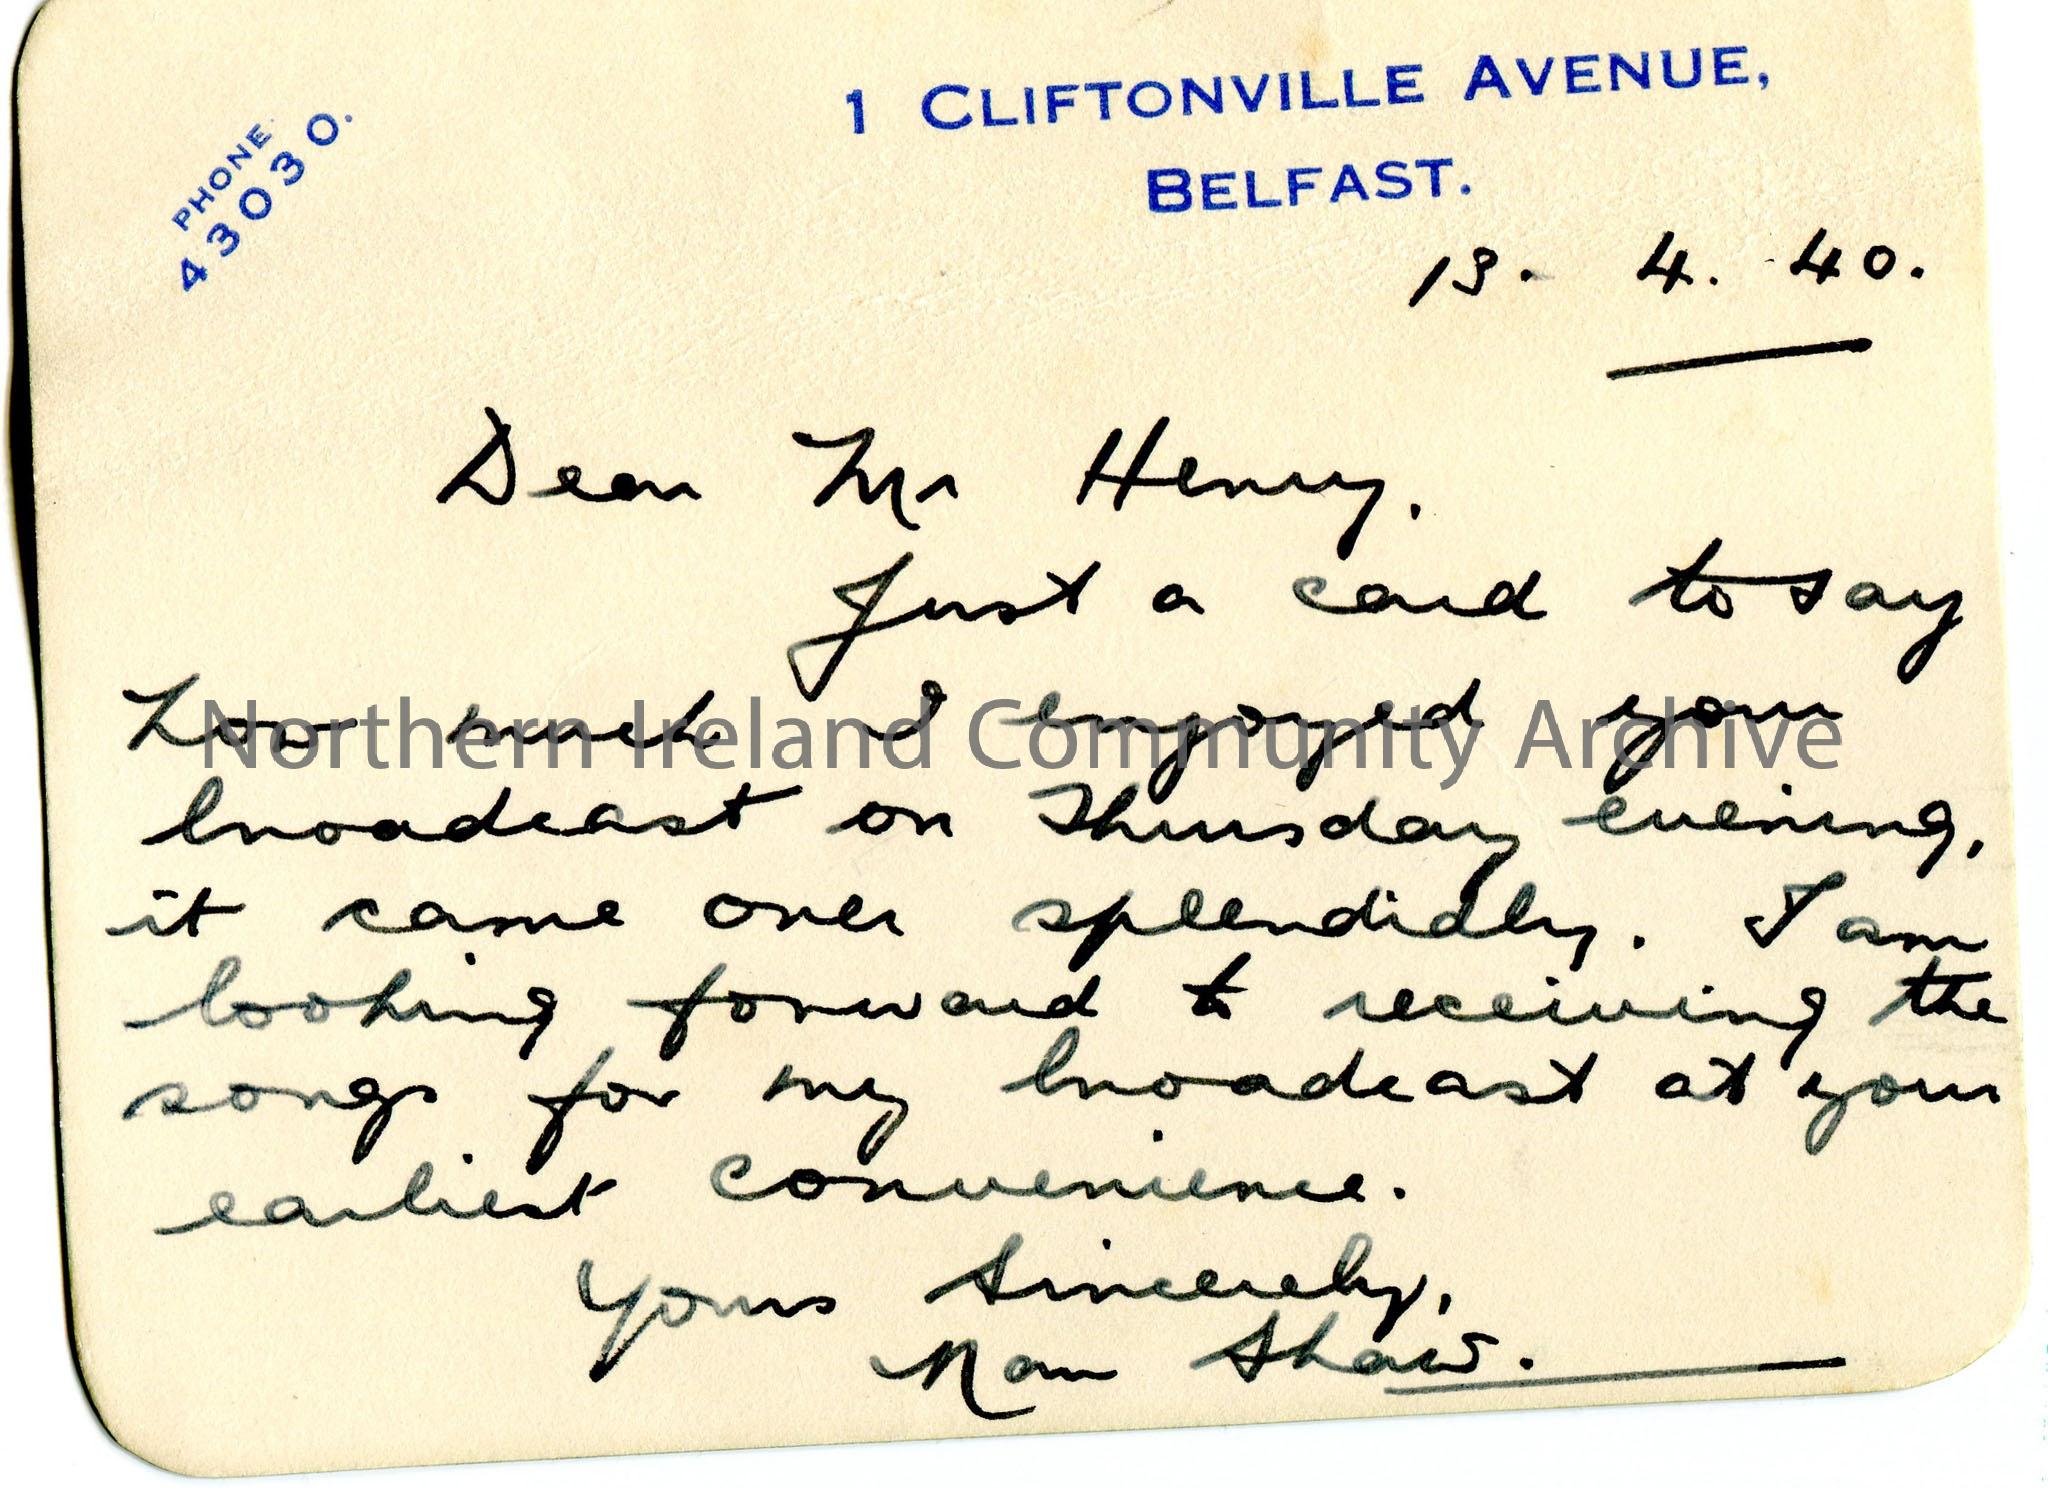 PHONE
43030.
1 CLIFTONVILLE AVENUE,
BELFAST.
13. 4. 40.
Dear Mr Henry.
Just a card to say
how much I enjoyed your
broadcast on Thursday evening,
it came over splendidly. I am
looking forward to receiving the
songs for my broadcast at your
earliest convenience.
Yours Sincerely,
Nan Shaw.
Northern Ireland Community Archive